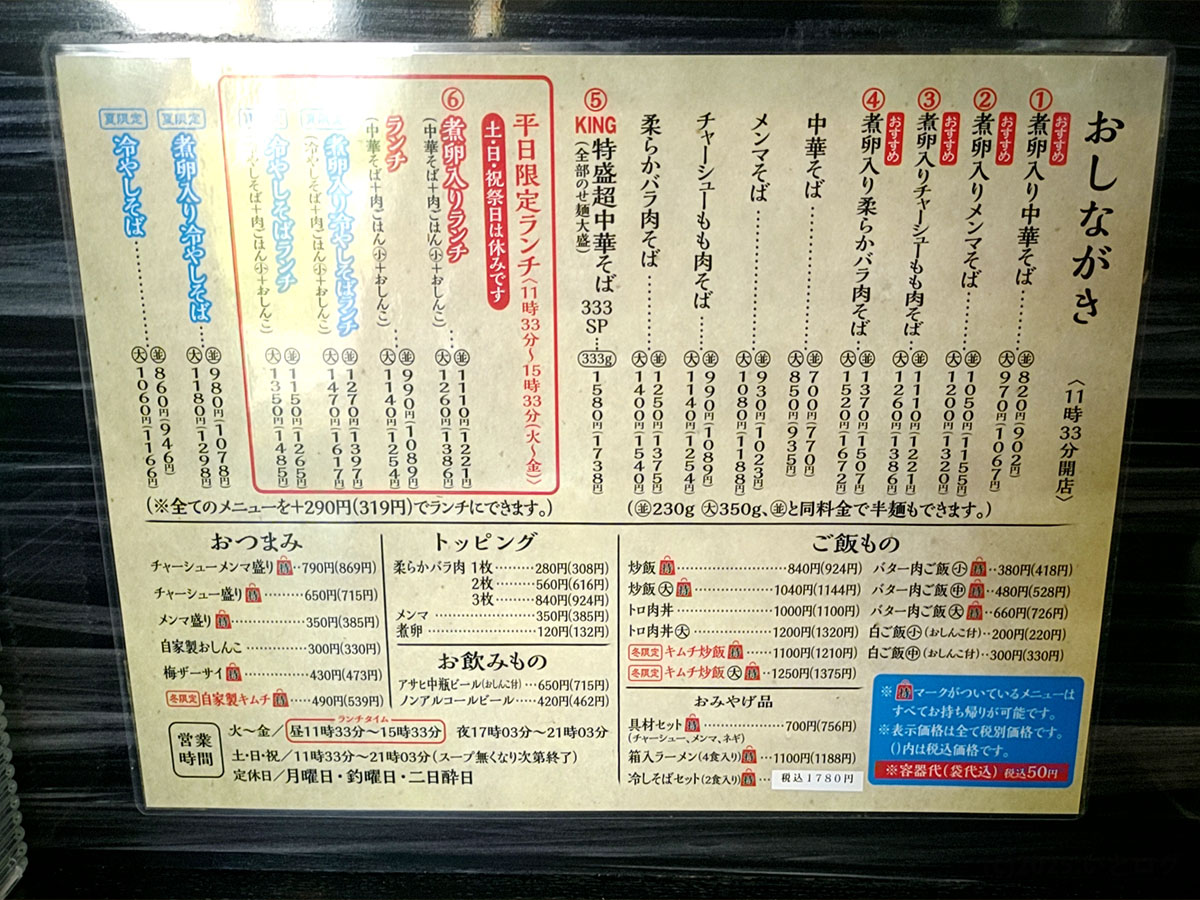 おしながき
〈11時33分開店〉
① おすすめ 煮卵入り中華そば ……… 並 820円(902円)
大 970円(1067円)
② おすすめ 煮卵入りメンマそば …… 並 1050円(1155円)
大 1200円(1320円)
③ おすすめ 煮卵入りチャーシューもも肉そば 並 1110円(1221円)
大 1260円(1386円)
④ おすすめ 煮卵入り柔らかバラ肉そば 並 1370円(1507円)
大 1520円(1672円)
中華そば ……… 並 700円(770円)
大 850円(935円)
メンマそば ……… 並 930円(1023円)
大 1080円(1188円)
チャーシューもも肉そば …… 並 990円(1089円)
大 1140円(1254円)
柔らかバラ肉そば ……… 並 1250円(1375円)
大 1400円(1540円)
⑤ KING 特盛超中華そば 333SP … 333g 1580円(1738円)
(全部のせ麺大盛)
(並230g 大350g、並と同料金で半麺もできます。)
平日限定ランチ〈11時33分〜15時33分(火〜金)〉
土・日・祝祭日は休みです
⑥ 煮卵入りランチ
(中華そば+肉ごはん小+おしんこ) … 並 1110円(1221円)
大 1260円(1386円)
ランチ
(中華そば+肉ごはん小+おしんこ) … 並 990円(1089円)
大 1140円(1254円)
煮卵入り冷やしそばランチ
(冷やしそば+肉ごはん小+おしんこ) 並 1270円(1397円)
大 1470円(1617円)
冷やしそばランチ
(冷やしそば+肉ごはん小+おしんこ) 並 1150円(1265円)
大 1350円(1485円)
夏限定 煮卵入り冷やしそば … 並 980円(1078円)
大 1180円(1298円)
夏限定 冷やしそば ……… 並 860円(946円)
大 1060円(1166円)
(※全てのメニューを+290円(319円)でランチにできます。)
おつまみ
チャーシューメンマ盛り ‥790円(869円)
チャーシュー盛り ……… 650円(715円)
メンマ盛り ……… 350円(385円)
自家製おしんこ ……… 300円(330円)
梅ザーサイ ……… 430円(473円)
冬限定 自家製キムチ … 490円(539円)
トッピング
柔らかバラ肉 1枚 ……… 280円(308円)
2枚 ……… 560円(616円)
3枚 ……… 840円(924円)
メンマ ……… 350円(385円)
煮卵 ……… 120円(132円)
お飲みもの
アサヒ中瓶ビール(おしんこ付) … 650円(715円)
ノンアルコールビール …… 420円(462円)
ご飯もの
炒飯 ……… 840円(924円)
炒飯 大 ……… 1040円(1144円)
トロ肉丼 ……… 1000円(1100円)
トロ肉丼 大 ……… 1200円(1320円)
冬限定 キムチ炒飯 …… 1100円(1210円)
冬限定 キムチ炒飯 大 … 1250円(1375円)
バター肉ご飯 小 ‥380円(418円)
バター肉ご飯 中 ‥480円(528円)
バター肉ご飯 大 ‥660円(726円)
白ご飯 小 (おしんこ付) ‥200円(220円)
白ご飯 中 (おしんこ付) ‥300円(330円)
おみやげ品
具材セット ……… 700円(756円)
(チャーシュー、メンマ、ネギ)
箱入ラーメン(4食入り) … 1100円(1188円)
冷しそばセット(2食入り) … 税込1780円
※ マークがついているメニューは
すべてお持ち帰りが可能です。
※表示価格は全て税別価格です。
()内は税込価格です。
※容器代(袋代込) 税込50円
営業時間
ランチタイム
火〜金/昼11時33分〜15時33分 夜17時03分〜21時03分
土・日・祝/11時33分〜21時03分(スープ無くなり次第終了)
定休日/月曜日・釣曜日・二日酔日